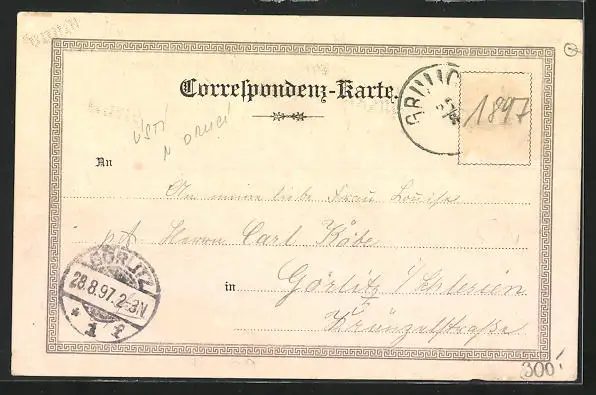 Correspondenz-Karte.
1897
ÚSTÍ
N ORLICÍ
An
An meine liebe Frau Louise
Herrn Carl Köbe
in Görlitz i/Schlesien
Krünzelstraße
GÖRLITZ
28.8.97.2-3N
* 1 f
300,